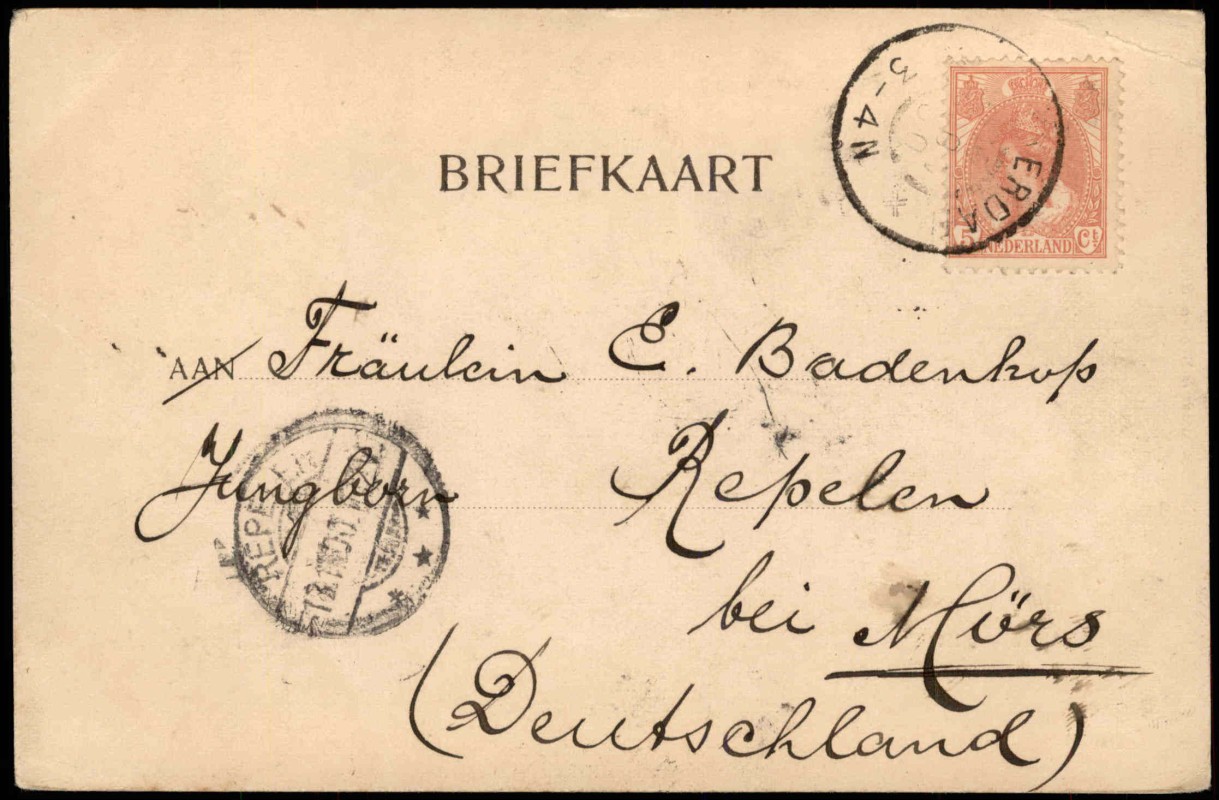 BRIEFKAART
3-4N
5 Ct
NEDERLAND
AAN Fräulein E. Badenkop
Jungborn Repelen
REPELEN
bei Mörs
(Deutschland)